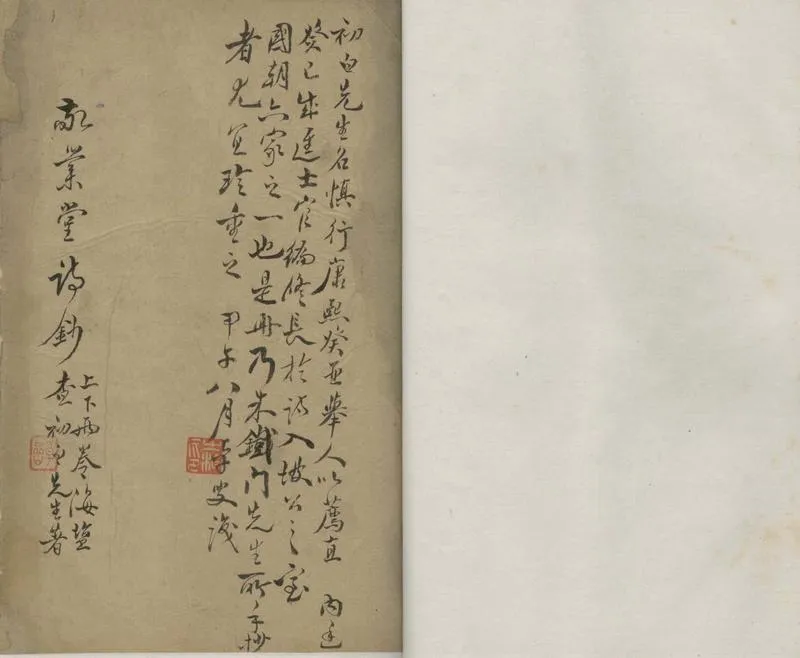 初白先生名慎行康熙癸酉舉人以薦直 內廷
癸巳成進士官編修長於詩入坡公之室
國朝六家之一也是冊乃朱鐵門先生所手抄
者尤宜珍重之 甲午八月 叟識
敬業堂詩鈔
上下兩卷海鹽
查初白先生著